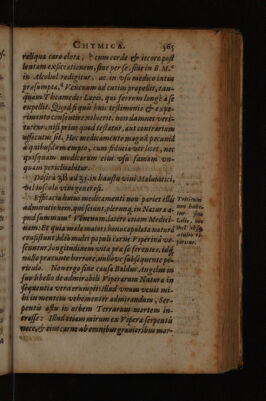 CHYMICA. 365
reliqua caro elota, & cum corde & iecore post
lentam exsiccationem, siue per se, siue in B.M.
in Alcohol redigitur, ac in vsu medico intus
præsumpta, Venenum ad centra propellit, tan-
quam Theamedes Lapis, qui ferrum longè à se
expellit. Quod si quis hoc testimonio & expe-
rimento consentire noluerit, non damnet veri-
tatem, nisi prius quod testatur, aut contrarium
vsu
sit. Hoc medicamentum quod pro
à quibusdam empto, cum fiducia vti licet, nec
quisquam medicorum eius vsu famam vn-
quam periclitabitur.
Dosis à ad in haustu vini Maluatici,
vel iusculo
Effectus horum medicamenti non pariet illis
admirationem, qui sciunt, plerumq; in Natura a-
pud summum Venenum, latere etiam Medici-
nam: Et quia in alimentis bona copulata natura
consistunt, hinc multi populi carne Viperina ve-
scuntur, longitudinem vita præ se ferente, idq;
nullo præeunte horrore, nullove subsequente pe-
riculo. Non ergo sine causa Baldus Angelus in
suo libello de admirabili Viperarum Natura in
sequentia vera erumpit: Illud vnum venit mi-
hi in mentem vehementer admirandum, Ser-
pentis astu in orbem Terrarum mortem in-
trasse: Illud etiam mirum ex Vipera serpentis
nece, & eius carne ab omnibus grauioribus mor-